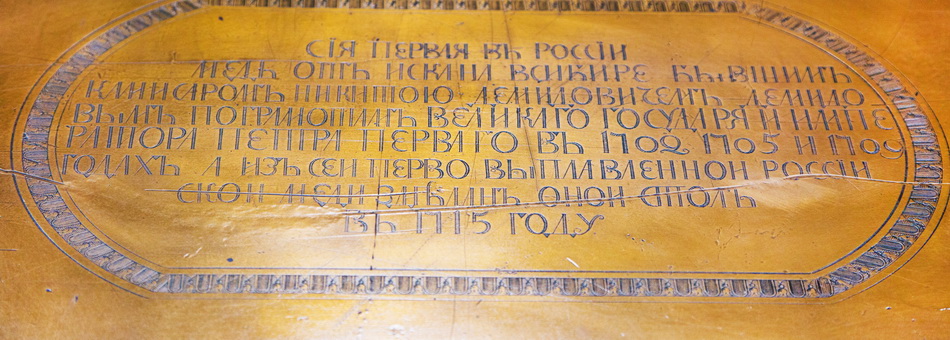 СІЯ ПЕРВАЯ ВЪ РОССІИ
МЕДЬ ОТЪ ИСКАНА ВСИБИРЕ БЫВШИМЪ
КАММСАРОМЪ НИКИТОЮ ДЕМИДОВИЧЕМЪ ДЕМИДО
ВЫМЪ ПОГРАМОТАМЪ ВЕЛИКАГО ГОСУДАРЯ И ИМПЕ
РАТОРА ПЕТРА ПЕРВАГО ВЪ 1702 1705 И 1709
ГОДАХЪ А ИЗЪ СЕИ ПЕРВО ВЫПЛАВЛЕННОИ РОССІИ
СКОИ МЕДИ ЗДѢЛАНЪ ОНОИ СТОЛЪ
ВЪ 1715 ГОДУ